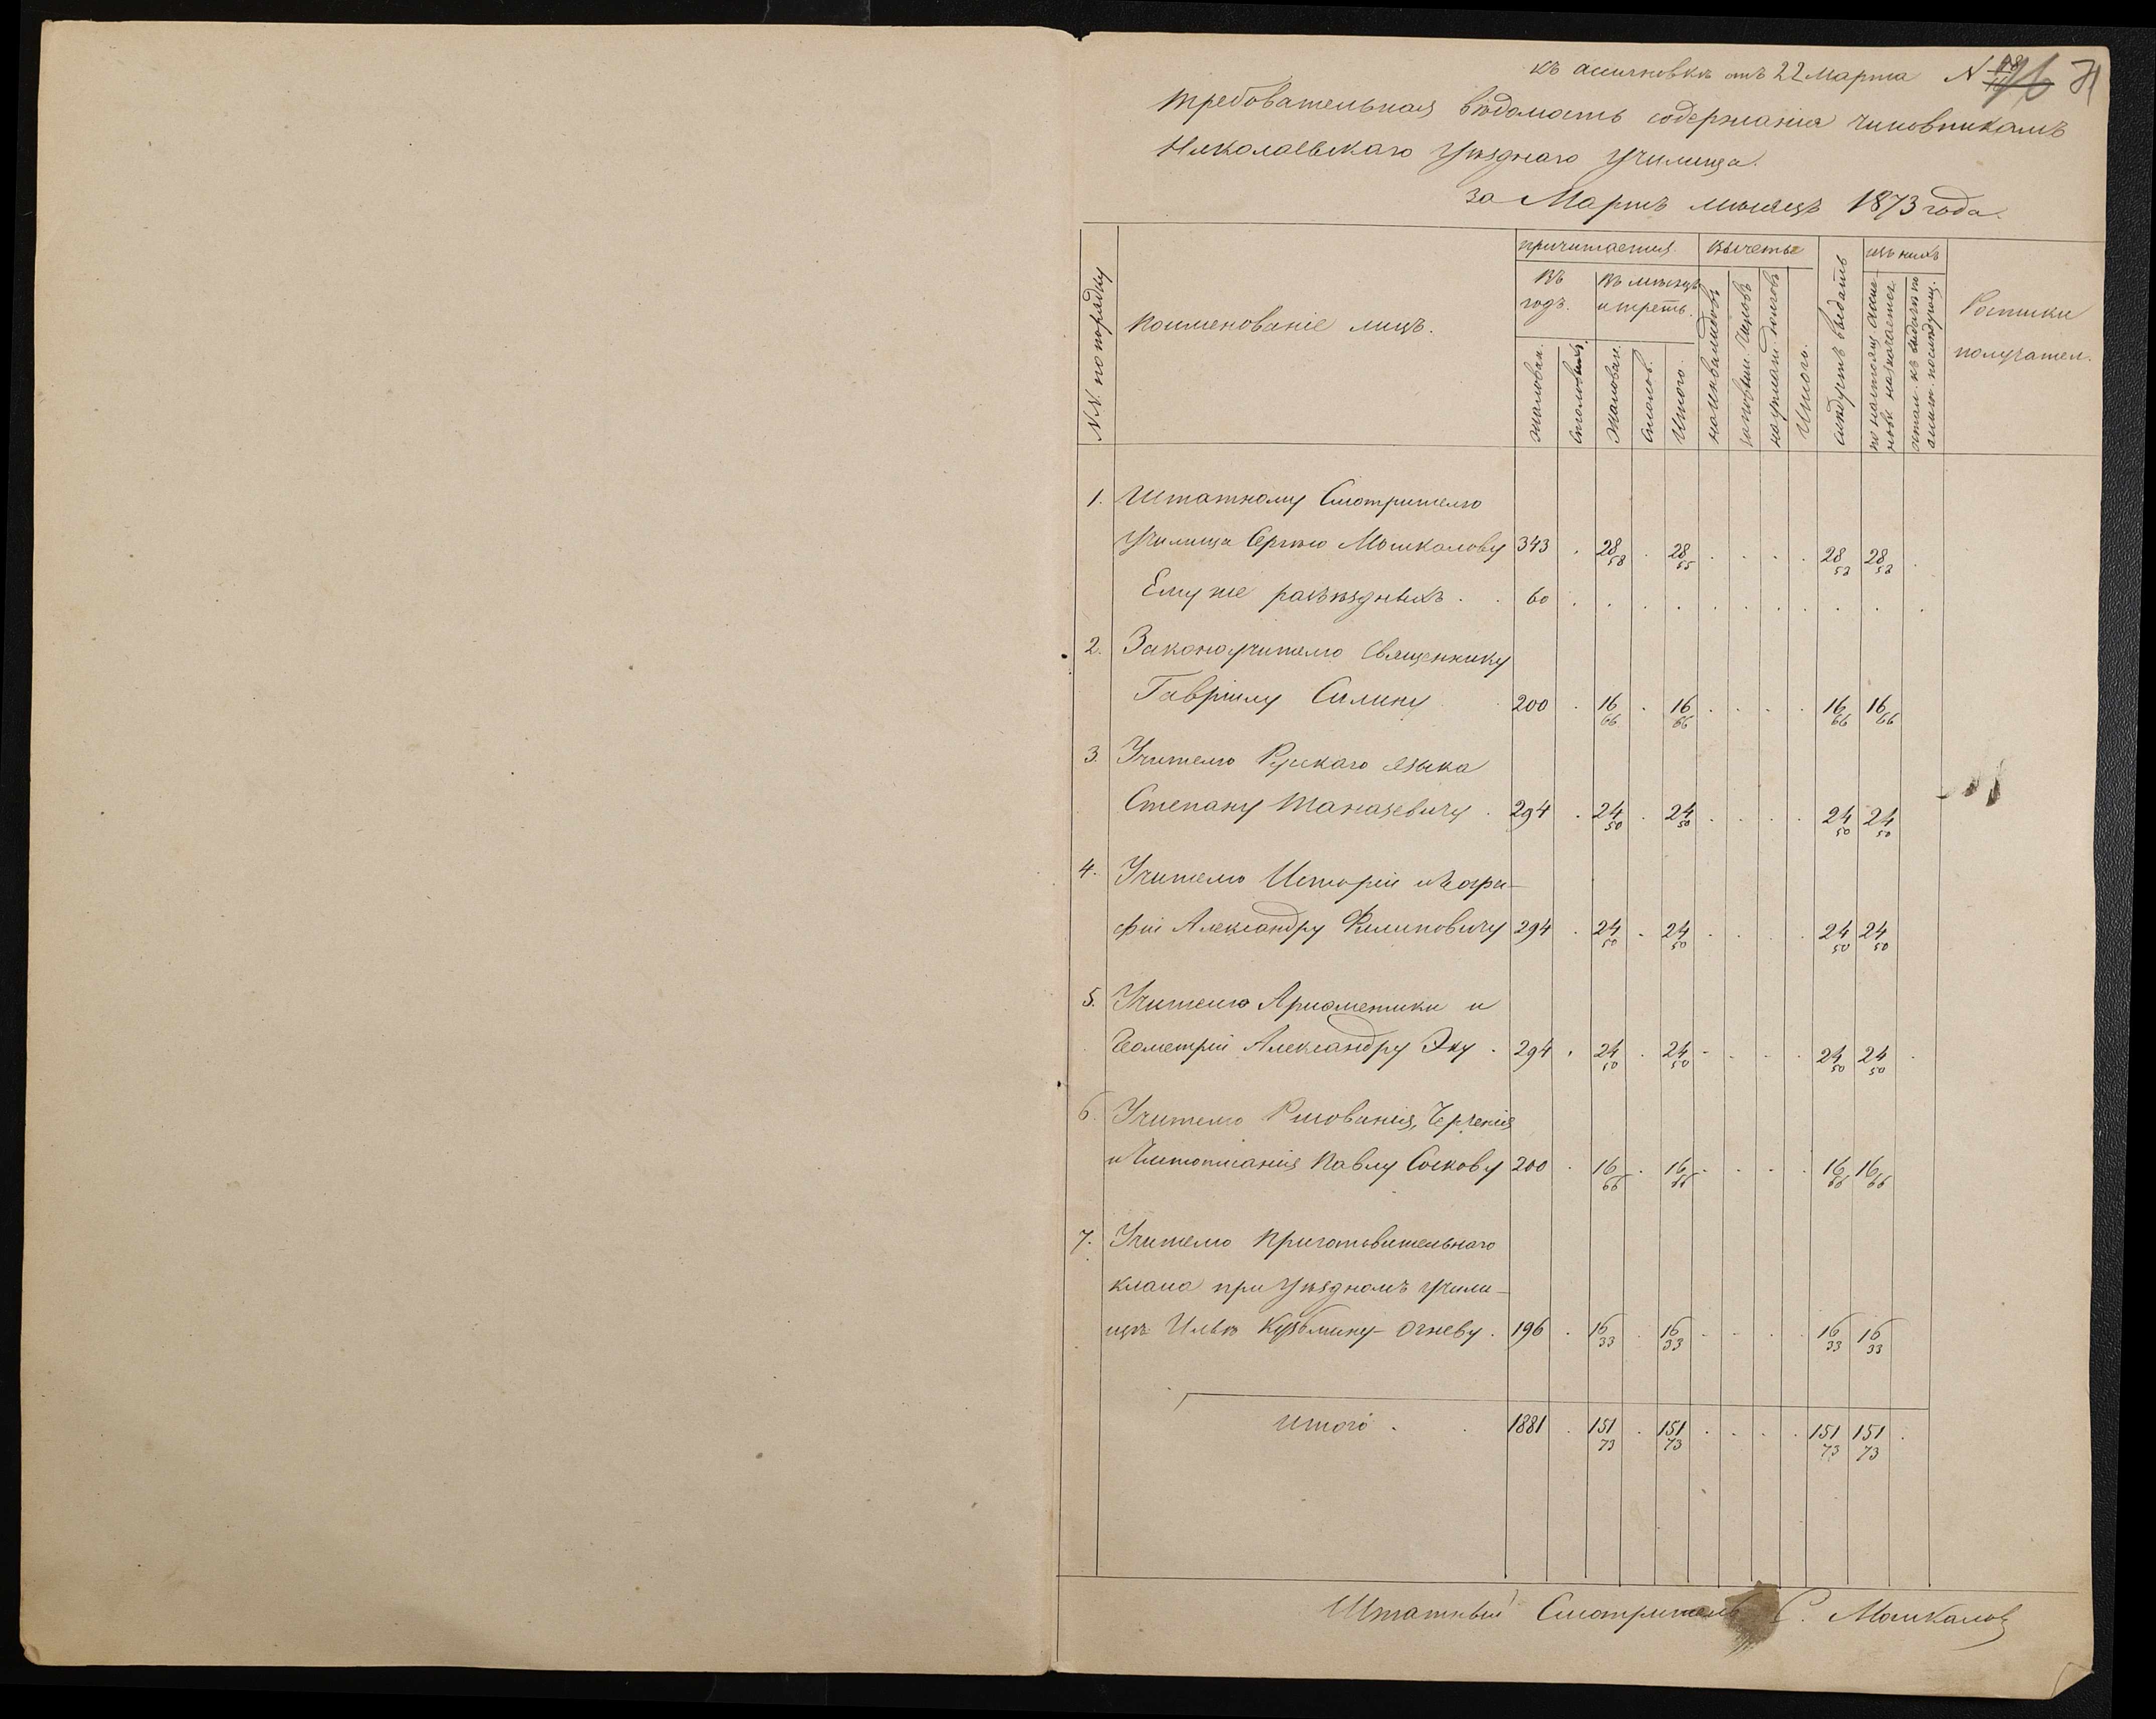 къ ассигновкѣ отъ 22 Марта N 71
Требовательная вѣдомость содержанія чиновникамъ
Николаевскаго Уѣзднаго Училища.
за Мартъ мѣсяцъ 1873 года.
NN. по порядку
Поименованіе лицъ.
причитается.
Вычеты
изъ нихъ
Въ годъ.
Въ мѣсяцъ и треть.
Жалован.
Столовыхъ.
Жалован.
Столов.
Итого.
на инвалидовъ
Итого.
слѣдуетъ выдать
по настоящ. ассиг-
новк. назначается.
Росписки
получател.
1. Штатному Смотрителю
Училища Сергѣю Мошкалову 343 . 28 58 . 28 55 . . . . 28 58 28 58 .
Ему же разъѣздныхъ . . 60 . . . . . . . . . . .
2. Законоучителю Священнику
Гавріилу Силину 200 . 16 66 . 16 66 . . . . 16 66 16 66
3. Учителю Рускаго языка
Степану Танасевичу . 294 . 24 50 . 24 50 . . . . 24 50 24 50
4. Учителю Исторіи и Геогра-
фіи Александру Филиповичу 294 . 24 50 . 24 50 . . . . 24 50 24 50
5. Учителю Ариѳметики и
Геометріи Александру Эку . 294 . 24 50 . 24 50 . . . . 24 50 24 50 .
6. Учителю Рисованія, Черченія
и Чистописанія Павлу Соскову 200 . 16 66 . 16 66 . . . . 16 66 16 66
7. Учителю Приготовительнаго
класа при Уѣздномъ Учили-
щѣ Ильѣ Кузьмину-Огневу . 196 . 16 33 . 16 33 . . . . 16 33 16 33
Итого . . 1881 . 151 73 . 151 73 . . . . 151 73 151 73 .
Штатный Смотритель С. Мошкаловъ